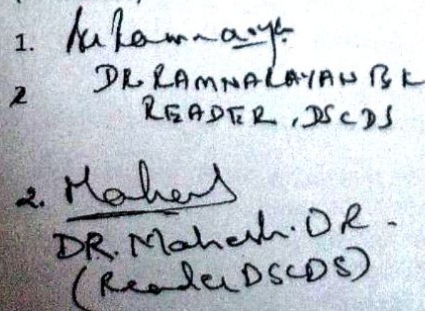 1.
2 DR. RAMNARAYAN B K
READER, DSCDS
2. Mahesh
DR. Mahesh. D R.
(Reader DSCDS)